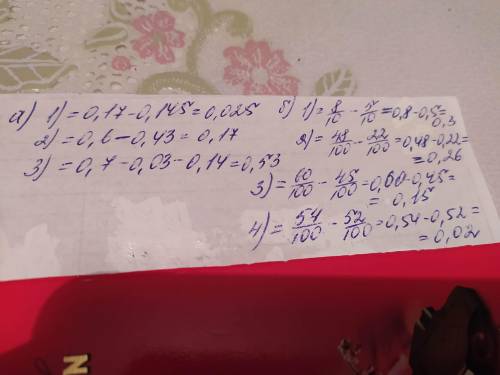 а) 1) = 0,17 - 0,145 = 0,025
2) = 0,6 - 0,43 = 0,17
3) = 0,7 - 0,03 - 0,14 = 0,53
б) 1) = 8/10 - 5/10 = 0,8 - 0,5 =
0,3
2) = 48/100 - 22/100 = 0,48 - 0,22 =
= 0,26
3) = 60/100 - 45/100 = 0,60 - 0,45 =
= 0,15
4) = 54/100 - 52/100 = 0,54 - 0,52 =
= 0,02
N